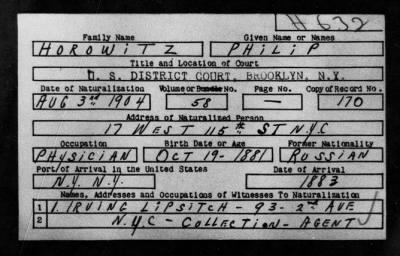 H 632
Family Name Given Name or Names
HOROWITZ PHILIP
Title and Location of Court
U. S. DISTRICT COURT, BROOKLYN, N.Y.
Date of Naturalization Volume or Bundle No. Page No. Copy of Record No.
AUG 3rd 1904 58 — 170
Address of Naturalized Person
17 WEST 115th ST N.Y.C
Occupation Birth Date or Age Former Nationality
PHYSICIAN OCT 19- 1881 RUSSIAN
Port of Arrival in the United States Date of Arrival
N.Y. N.Y. 1883
Names, Addresses and Occupations of Witnesses To Naturalization
1 I. IRVING LIPSITCH - 93 - 2nd AVE
2 N.Y.C - COLLECTION - AGENT